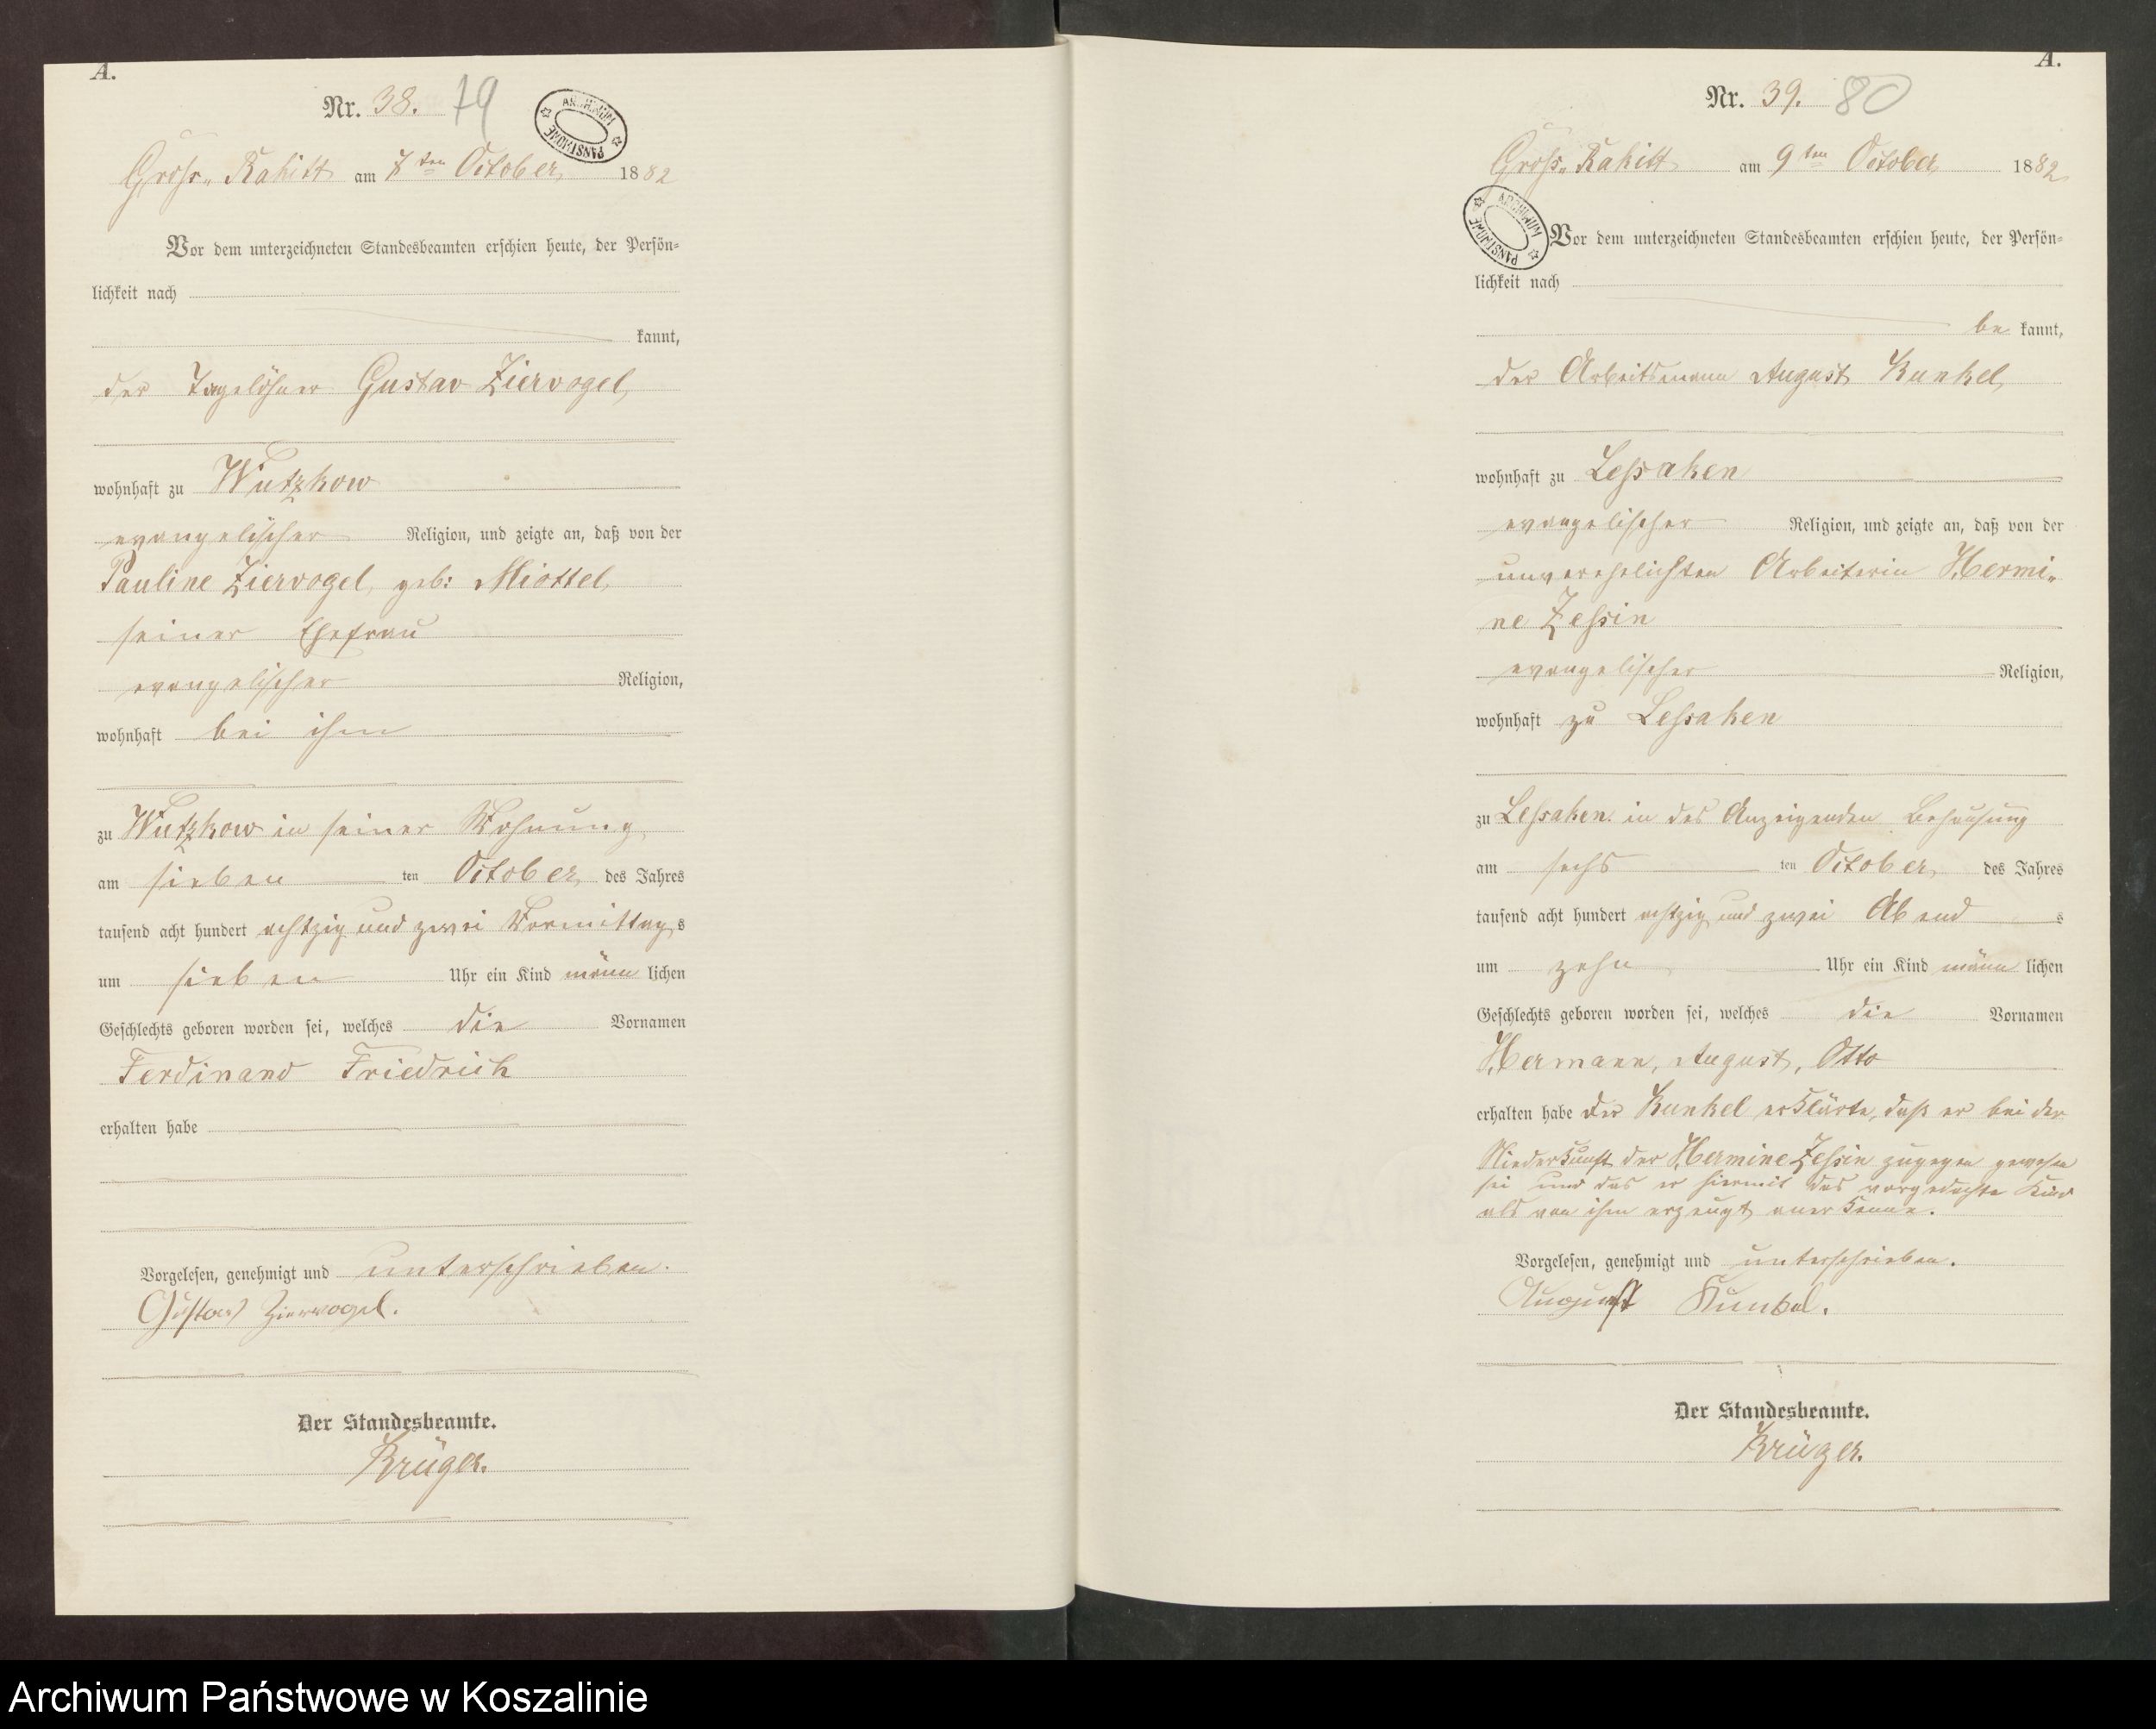 A.
Nr. 38. 79
ARCHIWUM PAŃSTWOWE
Gross-Rakitt am 7ten October 1882
Vor dem unterzeichneten Standesbeamten erschien heute, der Persön-
lichkeit nach
kannt,
der Tagelöhner Gustav Ziervogel,
wohnhaft zu Wutzkow
evangelischer Religion, und zeigte an, daß von der
Pauline Ziervogel, geb: Miottel,
seiner Ehefrau
evangelischer Religion,
wohnhaft bei ihm
zu Wutzkow in seiner Wohnung
am sieben ten October, des Jahres
tausend acht hundert achtzig und zwei Vormittags
um sieben Uhr ein Kind männlichen
Geschlechts geboren worden sei, welches die Vornamen
Ferdinand Friedrich
erhalten habe
Vorgelesen, genehmigt und unterschrieben.
Gustav Ziervogel.
Der Standesbeamte.
Krüger.
A.
Nr. 39. 80
Groß-Rakitt am 9ten October 1882
ARCHIWUM PAŃSTWOWE
Vor dem unterzeichneten Standesbeamten erschien heute, der Persön-
lichkeit nach
bekannt,
der Arbeitsmann August Kunkel,
wohnhaft zu Leßaken
evangelischer Religion, und zeigte an, daß von der
unverehelichten Arbeiterin Hermi-
ne Zeßin
evangelischer Religion,
wohnhaft zu Leßaken
zu Leßaken in des Anzeigenden Behausung
am sechs ten October, des Jahres
tausend acht hundert achtzig und zwei Abends
um zehn Uhr ein Kind männlichen
Geschlechts geboren worden sei, welches die Vornamen
Hermann, August, Otto
erhalten habe der Kunkel erklärte, daß er bei der
Niederkunft der Hermine Zeßin zugegen gewesen
sei und das er hiermit das vorgedachte Kind
als von ihm erzeugt anerkenne.
Vorgelesen, genehmigt und unterschrieben.
August Kunkel.
Der Standesbeamte.
Krüger.
Archiwum Państwowe w Koszalinie